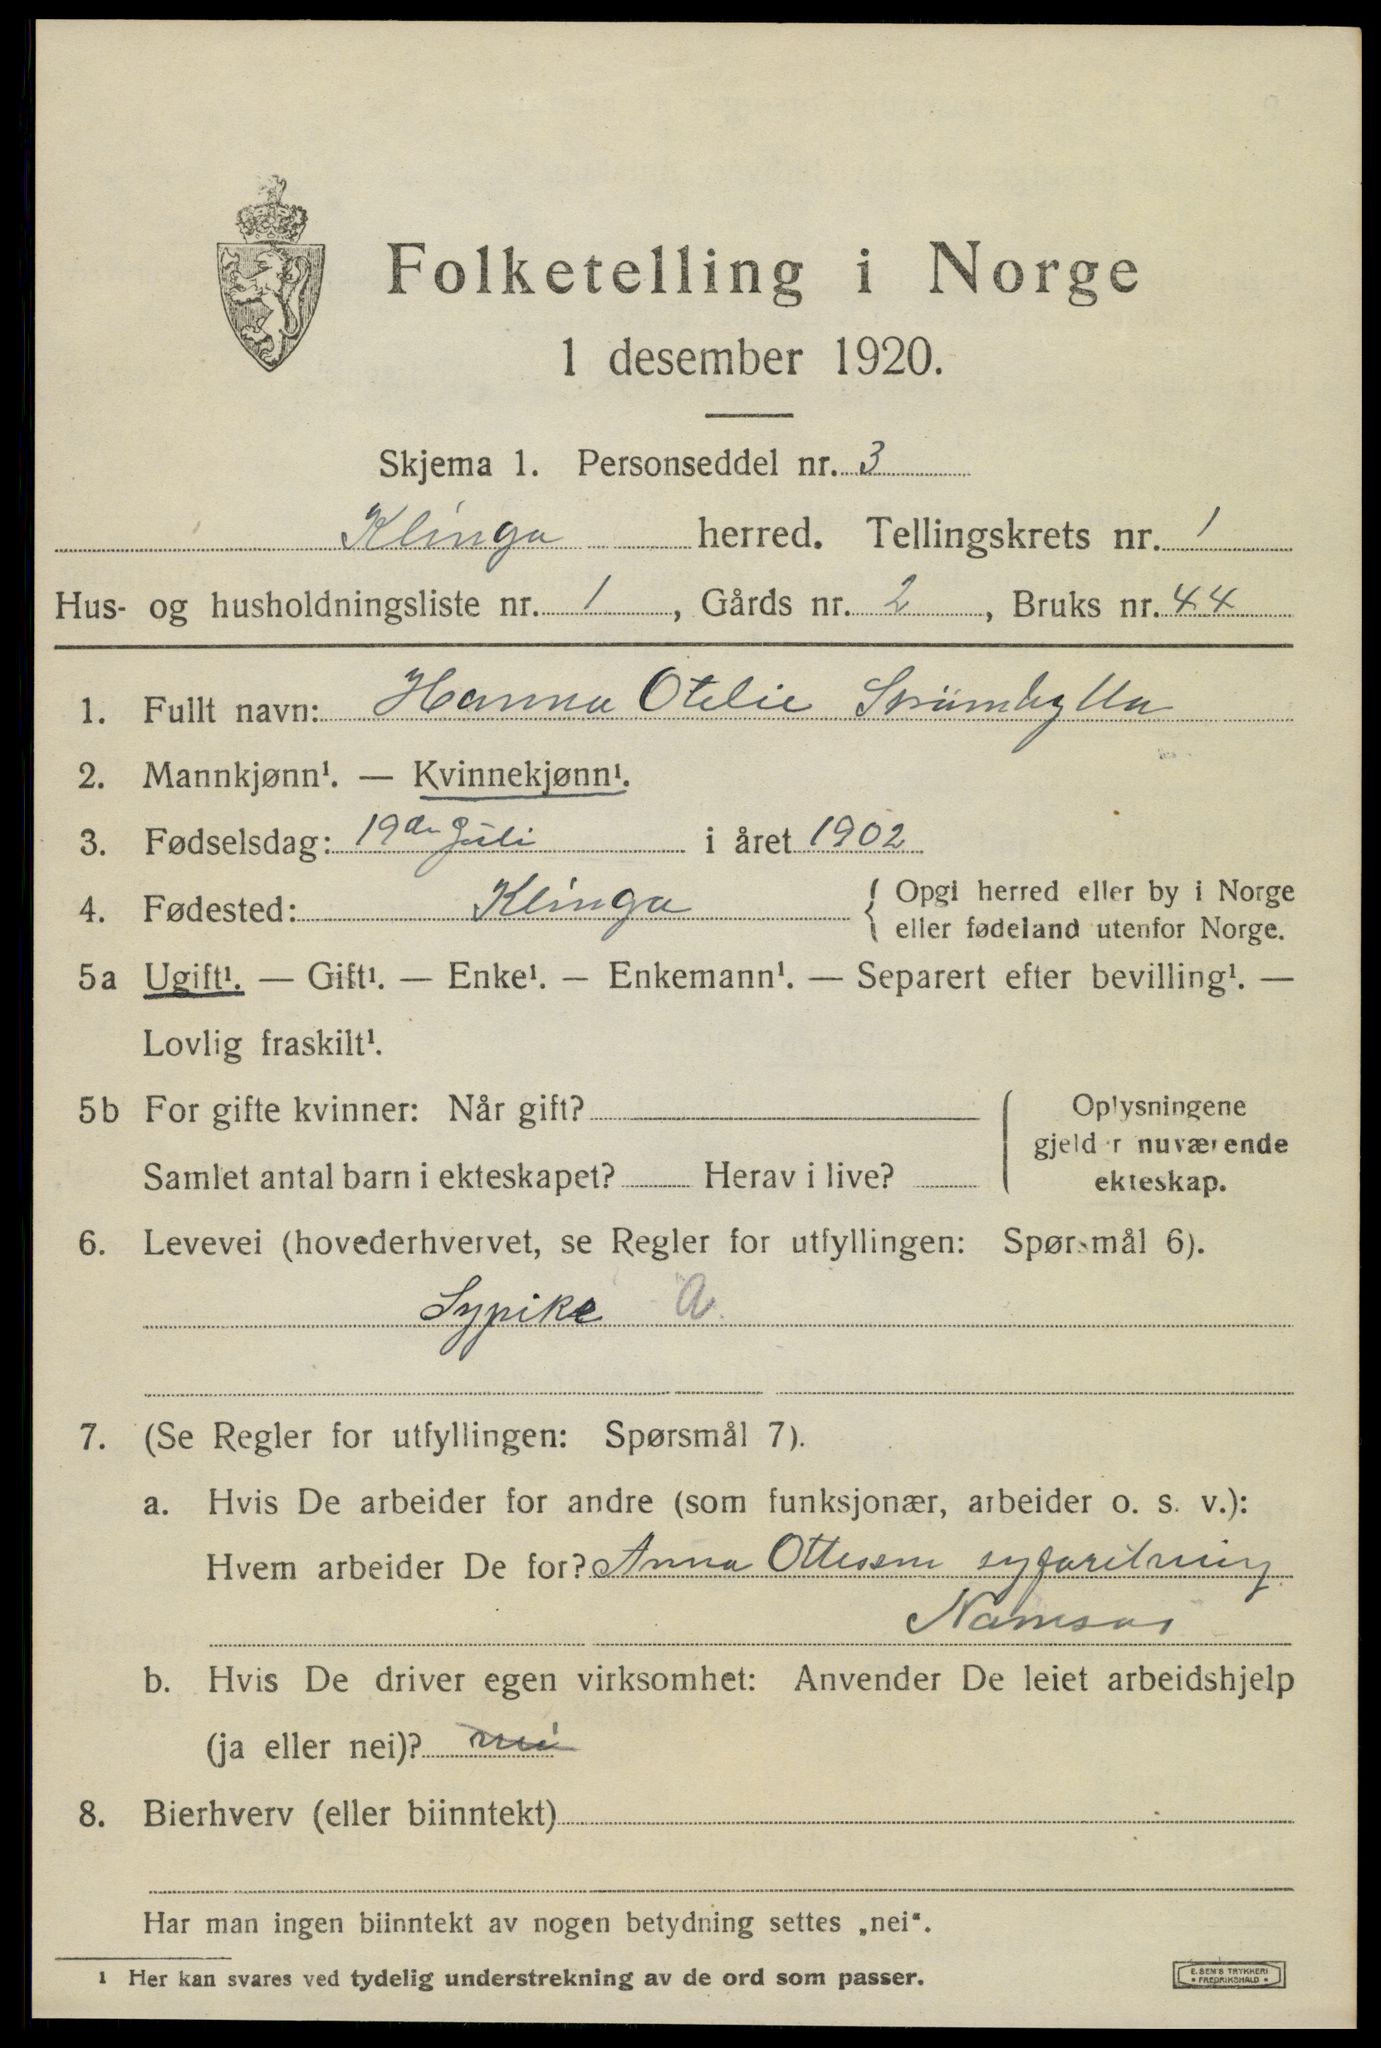 Folketelling i Norge
1 desember 1920.
Skjema 1. Personseddel nr. 3
Klinga herred. Tellingskrets nr. 1
Hus- og husholdningsliste nr. 1, Gårds nr. 2, Bruks nr. 44
1. Fullt navn: Hanna Otelie Strømhylla
2. Mannkjønn¹. — Kvinnekjønn¹.
3. Fødselsdag: 19de Juli i året 1902
4. Fødested: Klinga { Opgi herred eller by i Norge
eller fødeland utenfor Norge.
5a Ugift¹. — Gift¹. — Enke¹. — Enkemann¹. — Separert efter bevilling¹. —
Lovlig fraskilt¹.
5b For gifte kvinner: Når gift?
Samlet antal barn i ekteskapet? Herav i live?
Oplysningene
gjelder nuværende
ekteskap.
6. Levevei (hovederhvervet, se Regler for utfyllingen: Spørsmål 6).
Sypike A
7. (Se Regler for utfyllingen: Spørsmål 7).
a. Hvis De arbeider for andre (som funksjonær, arbeider o. s. v.):
Hvem arbeider De for? Anna Ottesen syforetning
Namsos
b. Hvis De driver egen virksomhet: Anvender De leiet arbeidshjelp
(ja eller nei)? nei
8. Bierhverv (eller biinntekt)
Har man ingen biinntekt av nogen betydning settes „nei“.
1 Her kan svares ved tydelig understrekning av de ord som passer.
E. SEM'S TRYKKERI
• FREDRIKSHALD •